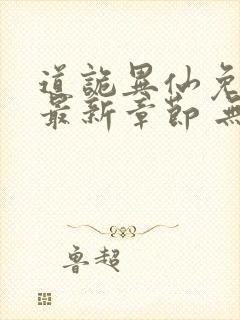 道詭異仙免
最新章節 無
魯超